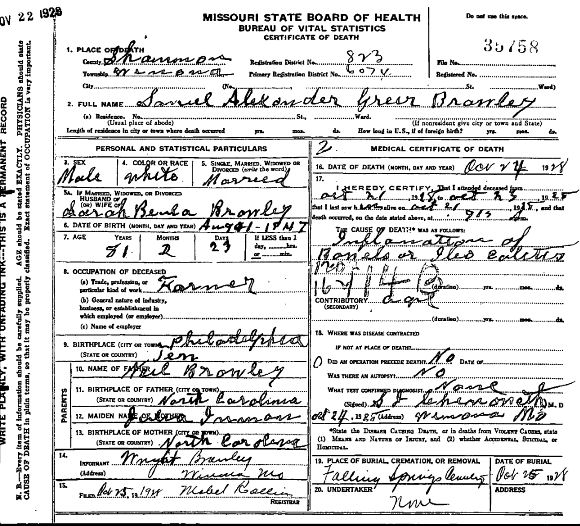 NOV 22 1928
MISSOURI STATE BOARD OF HEALTH
BUREAU OF VITAL STATISTICS
CERTIFICATE OF DEATH
Do not use this space.
35758
1. PLACE OF DEATH
County Shannon
Registration District No. 823
File No.
Township Winona
Primary Registration District No. 6074
Registered No.
City (No. St. Ward)
2. FULL NAME Samuel Alexander Greer Brawley
(a) Residence. No. St. Ward.
(Usual place of abode) (If nonresident give city or town and State)
Length of residence in city or town where death occurred yrs. mos. ds. How long in U.S., if of foreign birth? yrs. mos. ds.
PERSONAL AND STATISTICAL PARTICULARS
3. SEX Male
4. COLOR OR RACE White
5. SINGLE, MARRIED, WIDOWED OR DIVORCED (write the word) Married
5A. IF MARRIED, WIDOWED, OR DIVORCED
HUSBAND OF
(OR) WIFE OF
Sarah Beula Brawley
6. DATE OF BIRTH (MONTH, DAY AND YEAR) Aug 1 1847
7. AGE YEARS 81 MONTHS 2 DAYS 23 If LESS than 1 day, hrs. or min.
8. OCCUPATION OF DECEASED
(a) Trade, profession, or particular kind of work Farmer
(b) General nature of industry, business, or establishment in which employed (or employer)
(c) Name of employer
9. BIRTHPLACE (CITY OR TOWN) Philadelphia
(STATE OR COUNTRY) Ten
PARENTS
10. NAME OF FATHER Neil Brawley
11. BIRTHPLACE OF FATHER (CITY OR TOWN)
(STATE OR COUNTRY) North Carolina
12. MAIDEN NAME OF MOTHER Inman
13. BIRTHPLACE OF MOTHER (CITY OR TOWN)
(STATE OR COUNTRY) North Carolina
14. INFORMANT Wright Brawley
(Address) Winona Mo
15. FILED Oct 25, 1928 Mabel
MEDICAL CERTIFICATE OF DEATH
16. DATE OF DEATH (MONTH, DAY AND YEAR) Oct 24 1928
17. I HEREBY CERTIFY, That I attended deceased from
Oct 21, 1928, to Oct 23, 1928
that I last saw h alive on Oct 21, 1928, and that
death occurred, on the date stated above, at
THE CAUSE OF DEATH* WAS AS FOLLOWS:
Inflamation of
Bowels or Ileo Colitis
CONTRIBUTORY age
(SECONDARY)
18. WHERE WAS DISEASE CONTRACTED
IF NOT AT PLACE OF DEATH?
DID AN OPERATION PRECEDE DEATH? No DATE OF
WAS THERE AN AUTOPSY? No
WHAT TEST CONFIRMED DIAGNOSIS? None
(Signed) M.D.
Oct 24, 1928 (Address) Winona Mo
*State the DISEASE CAUSING DEATH, or in deaths from VIOLENT CAUSES, state
(1) MEANS AND NATURE OF INJURY, and (2) whether ACCIDENTAL, SUICIDAL, or
HOMICIDAL.
19. PLACE OF BURIAL, CREMATION, OR REMOVAL Falling Springs Cemetery
DATE OF BURIAL Oct 25 1928
20. UNDERTAKER None
ADDRESS
WRITE PLAINLY, WITH UNFADING INK---THIS IS A PERMANENT RECORD
N. B.—Every item of information should be carefully supplied. AGE should be stated EXACTLY. PHYSICIANS should state
CAUSE OF DEATH in plain terms, so that it may be properly classified. Exact statement of OCCUPATION is very important.